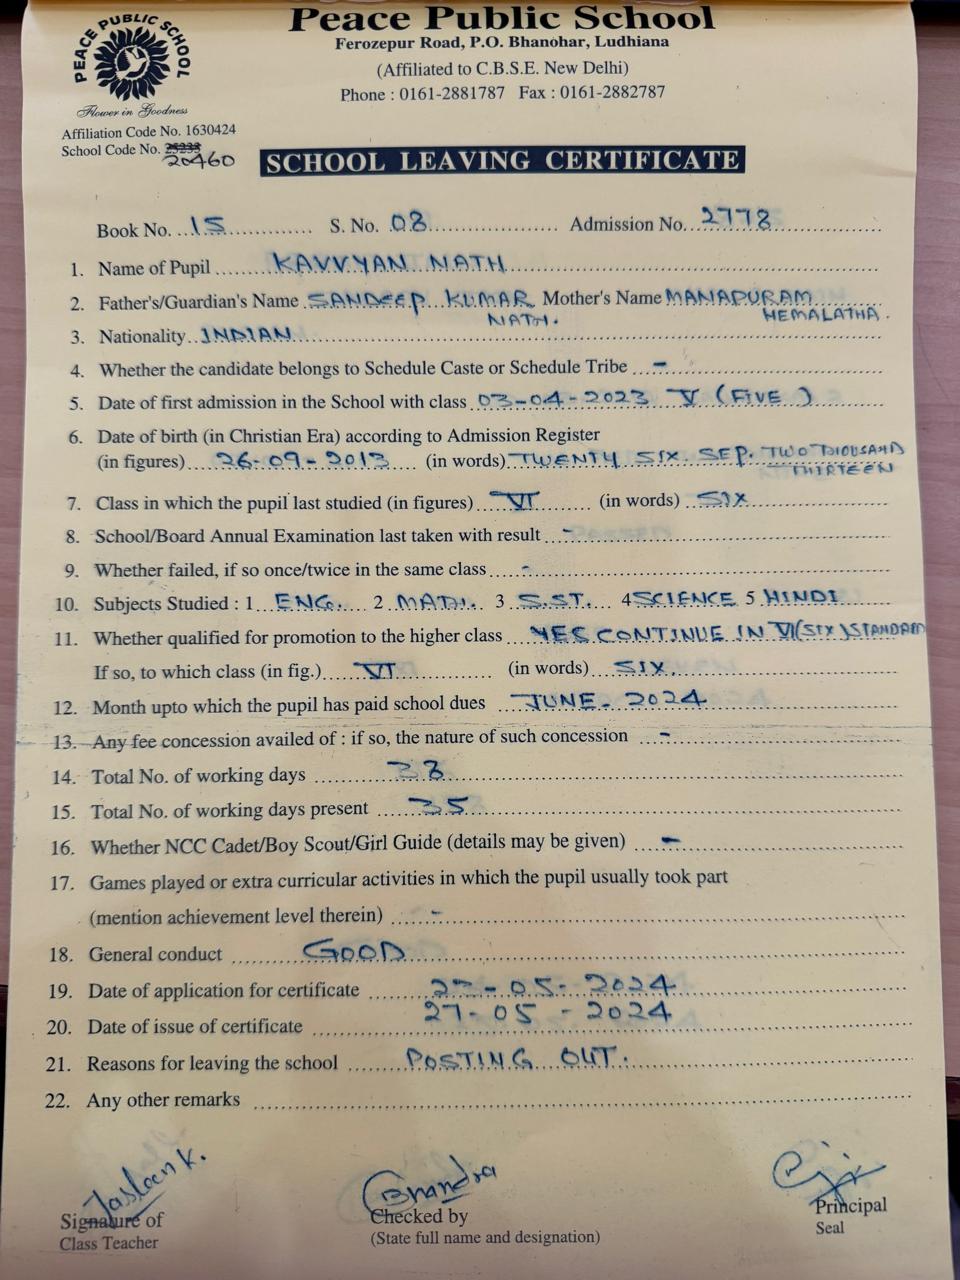 Peace Public School
Ferozepur Road, P.O. Bhanohar, Ludhiana
(Affiliated to C.B.S.E. New Delhi)
Phone : 0161-2881787 Fax : 0161-2882787
PEACE PUBLIC SCHOOL
Flower in Goodness
Affiliation Code No. 1630424
School Code No. 25233
20460
SCHOOL LEAVING CERTIFICATE
Book No. 15 S. No. 08 Admission No. 2778
1. Name of Pupil KAVVYAN NATH
2. Father's/Guardian's Name SANDEEP KUMAR Mother's Name MANAPURAM
NATH. HEMALATHA.
3. Nationality INDIAN
4. Whether the candidate belongs to Schedule Caste or Schedule Tribe -
5. Date of first admission in the School with class 03-04-2023 V (FIVE)
6. Date of birth (in Christian Era) according to Admission Register
(in figures) 26-09-2013 (in words) TWENTY SIX SEP. TWO THOUSAND
THIRTEEN
7. Class in which the pupil last studied (in figures) VI (in words) SIX
8. School/Board Annual Examination last taken with result -
9. Whether failed, if so once/twice in the same class -
10. Subjects Studied : 1 ENG. 2 MATH. 3 S.ST. 4 SCIENCE 5 HINDI
11. Whether qualified for promotion to the higher class YES CONTINUE IN VI (SIX) STANDARD
If so, to which class (in fig.) VI (in words) SIX.
12. Month upto which the pupil has paid school dues JUNE - 2024
13. Any fee concession availed of : if so, the nature of such concession -
14. Total No. of working days 38
15. Total No. of working days present 35
16. Whether NCC Cadet/Boy Scout/Girl Guide (details may be given) -
17. Games played or extra curricular activities in which the pupil usually took part
(mention achievement level therein) -
18. General conduct GOOD
19. Date of application for certificate 27-05-2024
20. Date of issue of certificate 27-05-2024
21. Reasons for leaving the school POSTING OUT.
22. Any other remarks
Jasleen K.
Signature of
Class Teacher
Checked by
(State full name and designation)
Principal
Seal